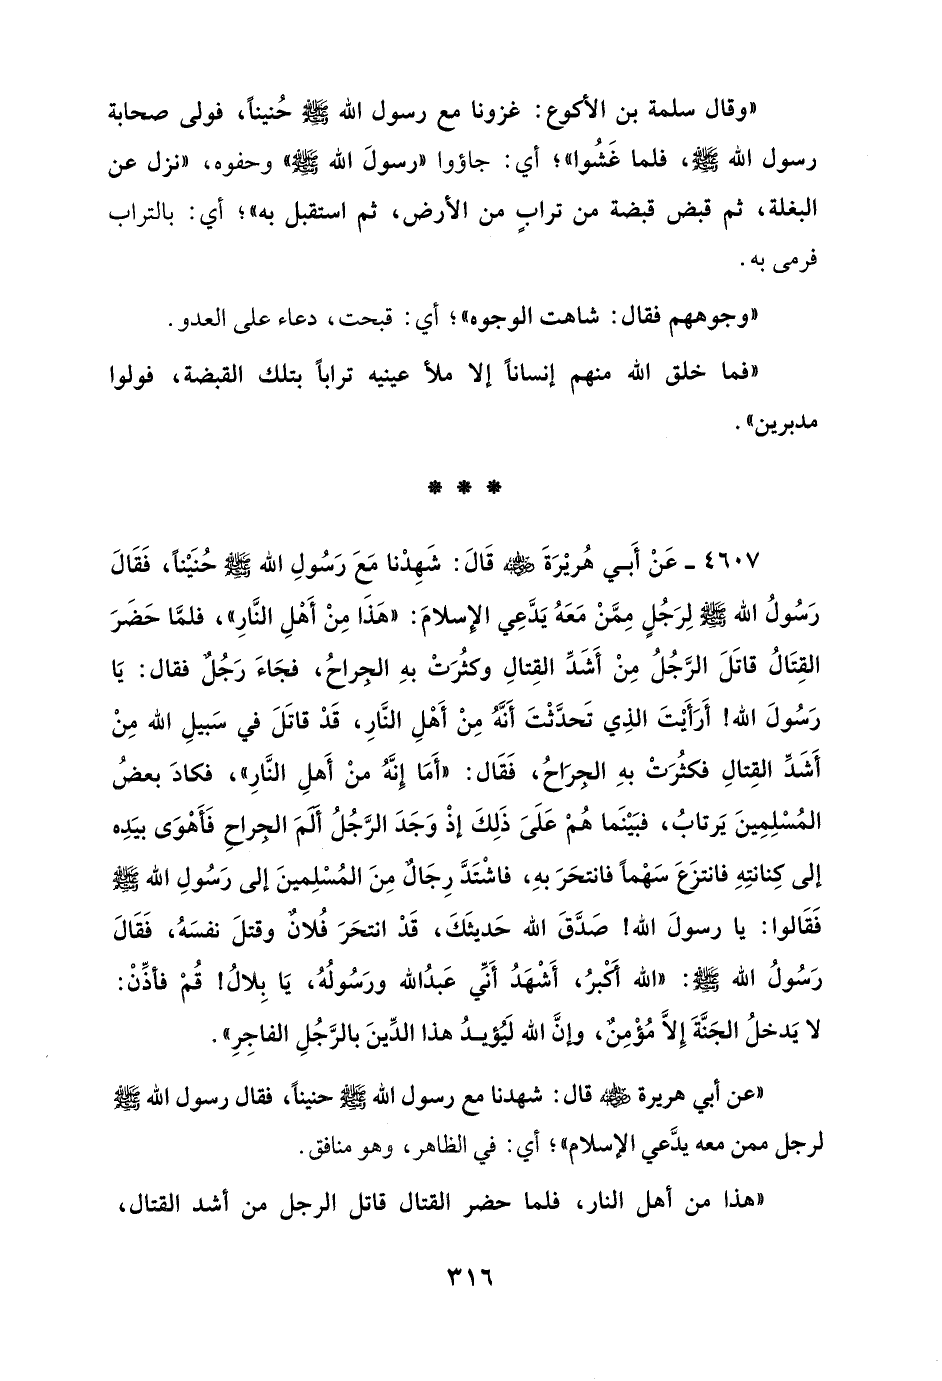 «وقال سلمة بن الأكوع: غزونا مع رسول الله ﷺ حُنيناً، فولى صحابة
رسول الله ﷺ، فلما غَشُوا»؛ أي: جاؤوا «رسولَ الله ﷺ» وحفوه، «نزل عن
البغلة، ثم قبض قبضة من ترابٍ من الأرض، ثم استقبل به»؛ أي: بالتراب
فرمى به.
«وجوههم فقال: شاهت الوجوه»؛ أي: قبحت، دعاء على العدو.
«فما خلق الله منهم إنساناً إلا ملأ عينيه تراباً بتلك القبضة، فولوا
مدبرين».
* * *
٤٦٠٧ ـ عَنْ أَبي هُرَيْرَةَ ﵁ قَالَ: شَهِدْنا مَعَ رَسُولِ الله ﷺ حُنَيْناً، فَقَالَ
رَسُولُ الله ﷺ لِرَجُلٍ مِمَّنْ مَعَهُ يَدَّعي الإسلامَ: «هَذَا مِنْ أَهْلِ النَّارِ»، فلمَّا حَضَرَ
القِتَالُ قاتَلَ الرَّجُلُ مِنْ أَشَدِّ القِتالِ وكثُرَتْ بهِ الجِراحُ، فجَاءَ رَجُلٌ فقال: يَا
رَسُولَ الله! أَرَأَيْتَ الذِي تَحدَّثْتَ أنَّهُ مِنْ أَهْلِ النَّارِ، قَدْ قاتَلَ في سَبيلِ الله مِنْ
أَشَدِّ القِتالِ فكثُرَتْ بهِ الجِرَاحُ، فَقَال: «أَمَا إِنَّهُ منْ أهلِ النَّارِ»، فكادَ بعضُ
المُسْلِمِينَ يَرتابُ، فبَيْنَما هُمْ عَلَى ذَلِكَ إذْ وَجَدَ الرَّجُلُ ألَمَ الجِراحِ فَأَهْوَى بيَدِه
إلى كِنانتِهِ فانتزَعَ سَهْماً فانتحَرَ بهِ، فاشْتَدَّ رِجالٌ مِنَ المُسْلِمينَ إلى رَسُولِ الله ﷺ
فَقَالوا: يا رسولَ الله! صَدَّقَ الله حَديثَكَ، قَدْ انتحَرَ فُلانٌ وقتلَ نفسَهُ، فَقَالَ
رَسُولُ الله ﷺ: «الله أَكْبرُ، أَشْهَدُ أَنِّي عَبدُالله ورَسُولُهُ، يَا بِلالُ! قُمْ فأذِّنْ:
لا يَدخلُ الجَنَّةَ إِلاَّ مُؤْمِنٌ، وإنَّ الله لَيُؤيـدُ هذا الدِّينَ بالرَّجُلِ الفاجِرِ».
«عن أبي هريرة ﵁ قال: شهدنا مع رسول الله ﷺ حنيناً، فقال رسول الله ﷺ
لرجل ممن معه يدَّعي الإسلام»؛ أي: في الظاهر، وهو منافق.
«هذا من أهل النار، فلما حضر القتال قاتل الرجل من أشد القتال،
٣١٦